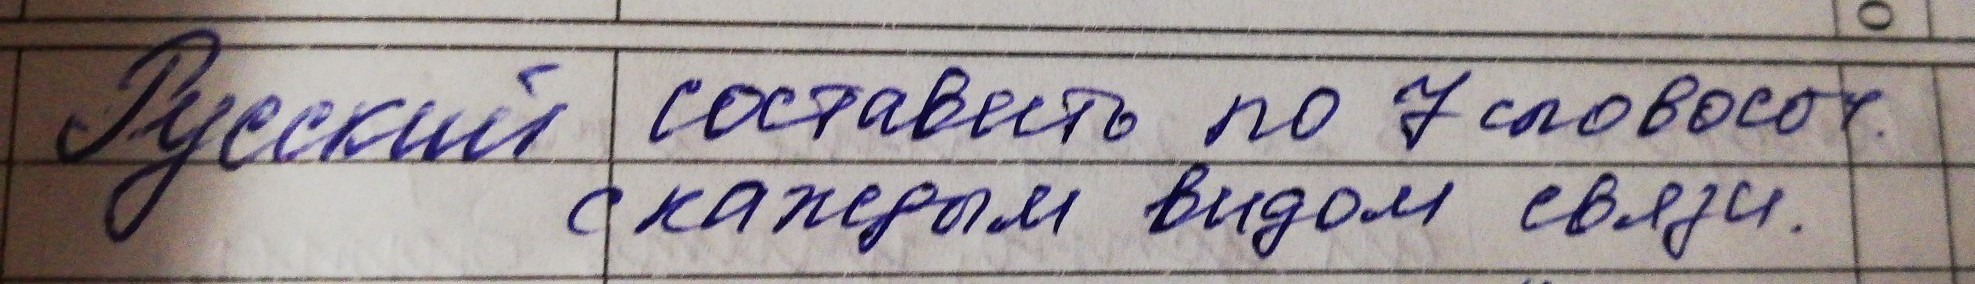 Русский составить по 7 словосоч.
с каждым видом связи.